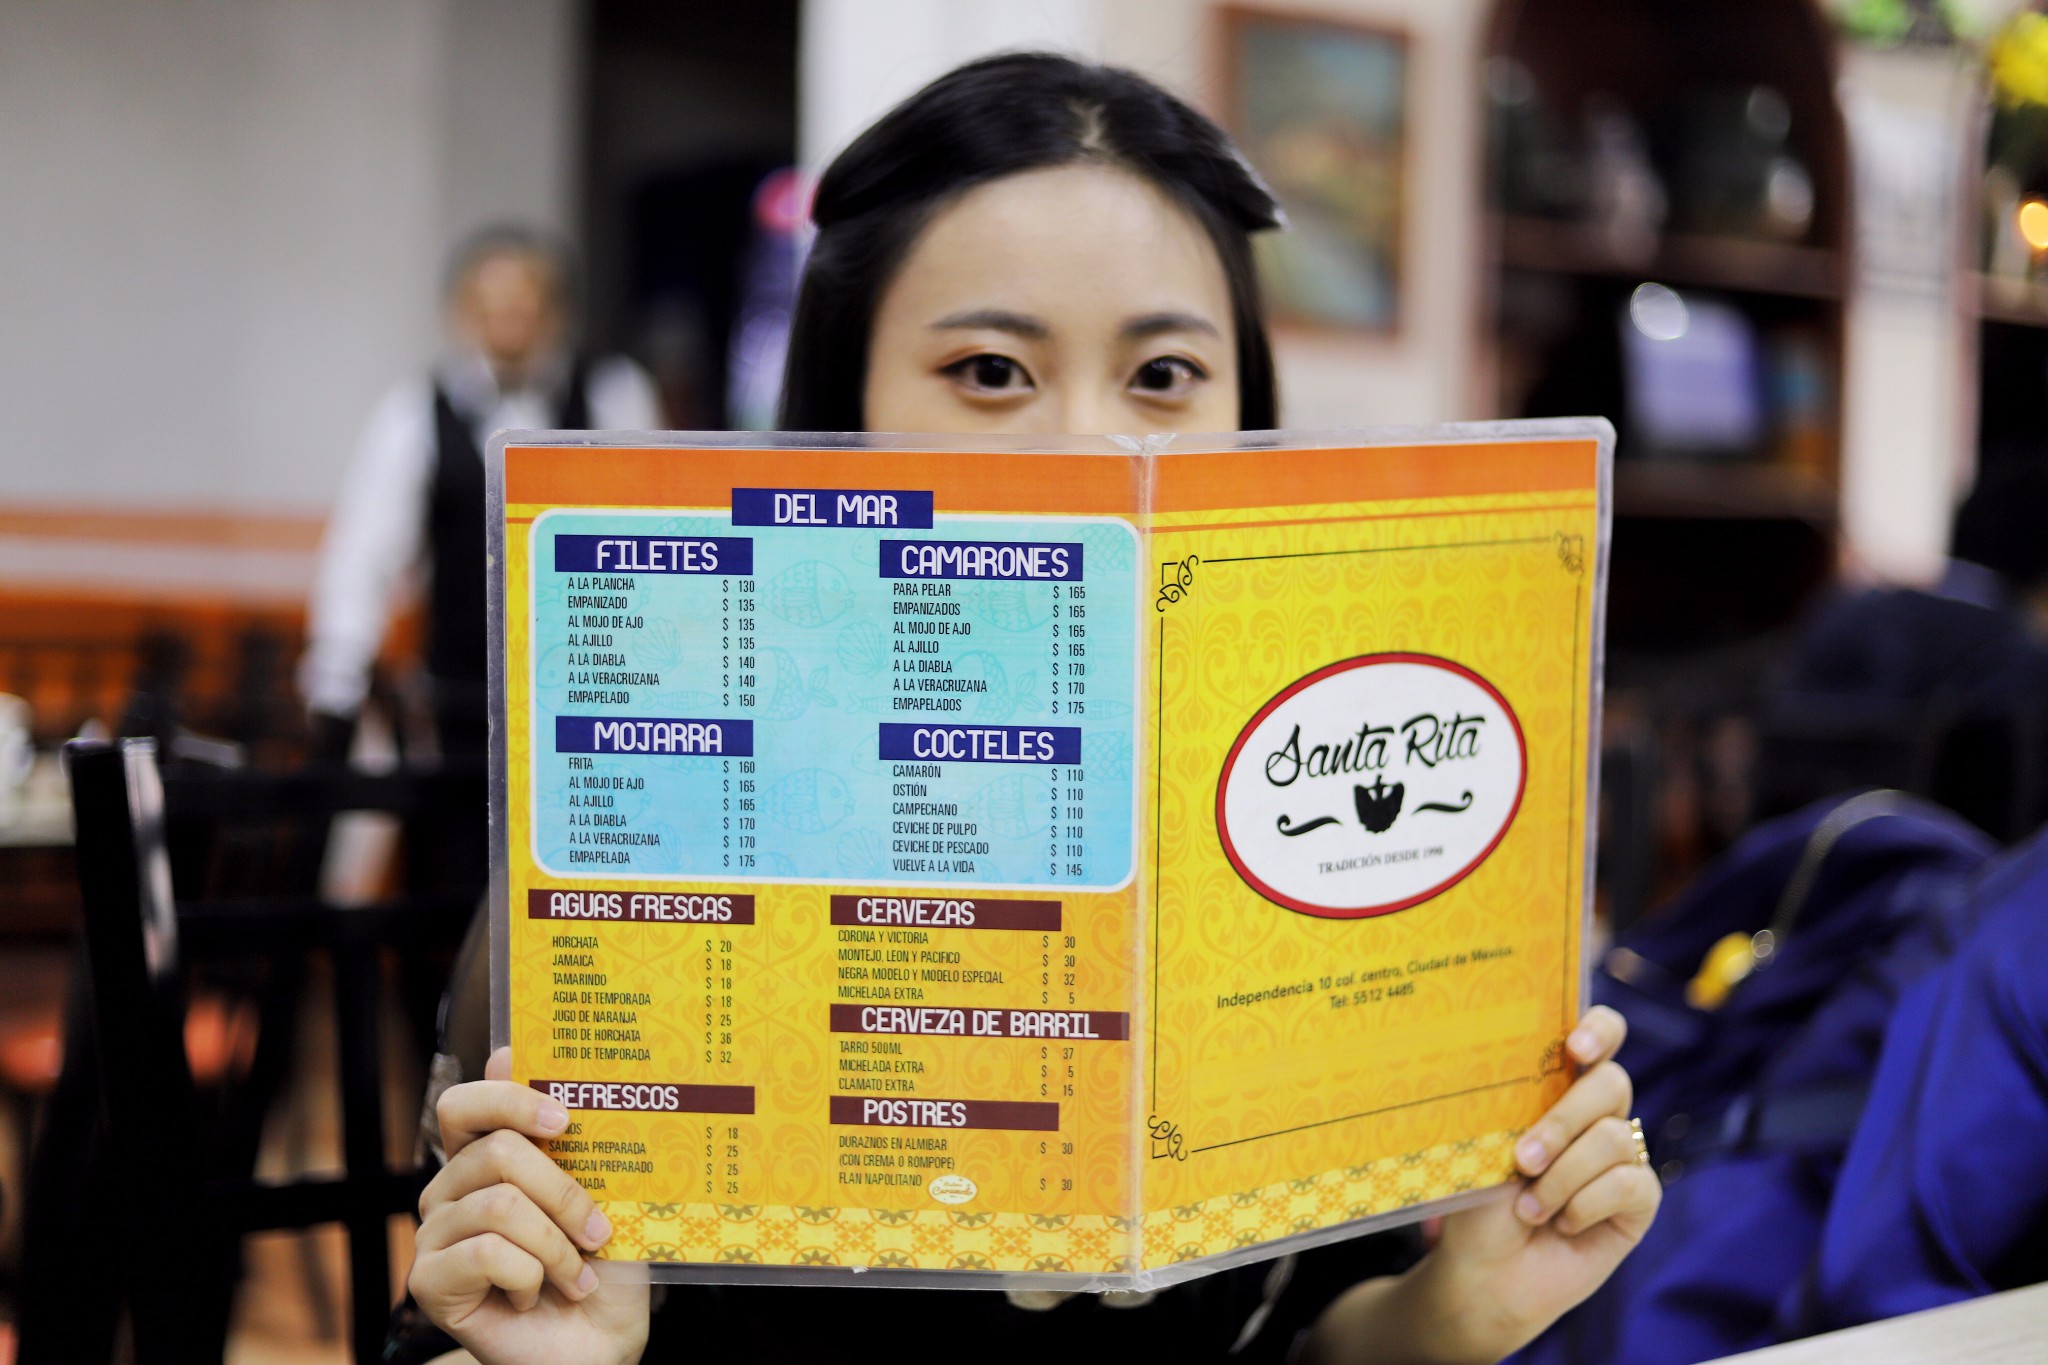 DEL MAR
FILETES
A LA PLANCHA $ 130
EMPANIZADO $ 135
AL MOJO DE AJO $ 135
AL AJILLO $ 135
A LA DIABLA $ 140
A LA VERACRUZANA $ 140
EMPAPELADO $ 150
MOJARRA
FRITA $ 160
AL MOJO DE AJO $ 165
AL AJILLO $ 165
A LA DIABLA $ 170
A LA VERACRUZANA $ 170
EMPAPELADA $ 175
CAMARONES
PARA PELAR $ 165
EMPANIZADOS $ 165
AL MOJO DE AJO $ 165
AL AJILLO $ 165
A LA DIABLA $ 170
A LA VERACRUZANA $ 170
EMPAPELADOS $ 175
COCTELES
CAMARÓN $ 110
OSTIÓN $ 110
CAMPECHANO $ 110
CEVICHE DE PULPO $ 110
CEVICHE DE PESCADO $ 110
VUELVE A LA VIDA $ 145
AGUAS FRESCAS
HORCHATA $ 20
JAMAICA $ 18
TAMARINDO $ 18
AGUA DE TEMPORADA $ 18
JUGO DE NARANJA $ 25
LITRO DE HORCHATA $ 36
LITRO DE TEMPORADA $ 32
REFRESCOS
$ 18
SANGRIA PREPARADA $ 25
EHUACAN PREPARADO $ 25
$ 25
CERVEZAS
CORONA Y VICTORIA $ 30
MONTEJO, LEON Y PACIFICO $ 30
NEGRA MODELO Y MODELO ESPECIAL $ 32
MICHELADA EXTRA $ 5
CERVEZA DE BARRIL
TARRO 500ML $ 37
MICHELADA EXTRA $ 5
CLAMATO EXTRA $ 15
POSTRES
DURAZNOS EN ALMIBAR $ 30
(CON CREMA O ROMPOPE)
FLAN NAPOLITANO $ 30
Santa Rita
TRADICIÓN DESDE 1990
Independencia 10 col. centro, Ciudad de Mexico.
Tel: 5512 4485